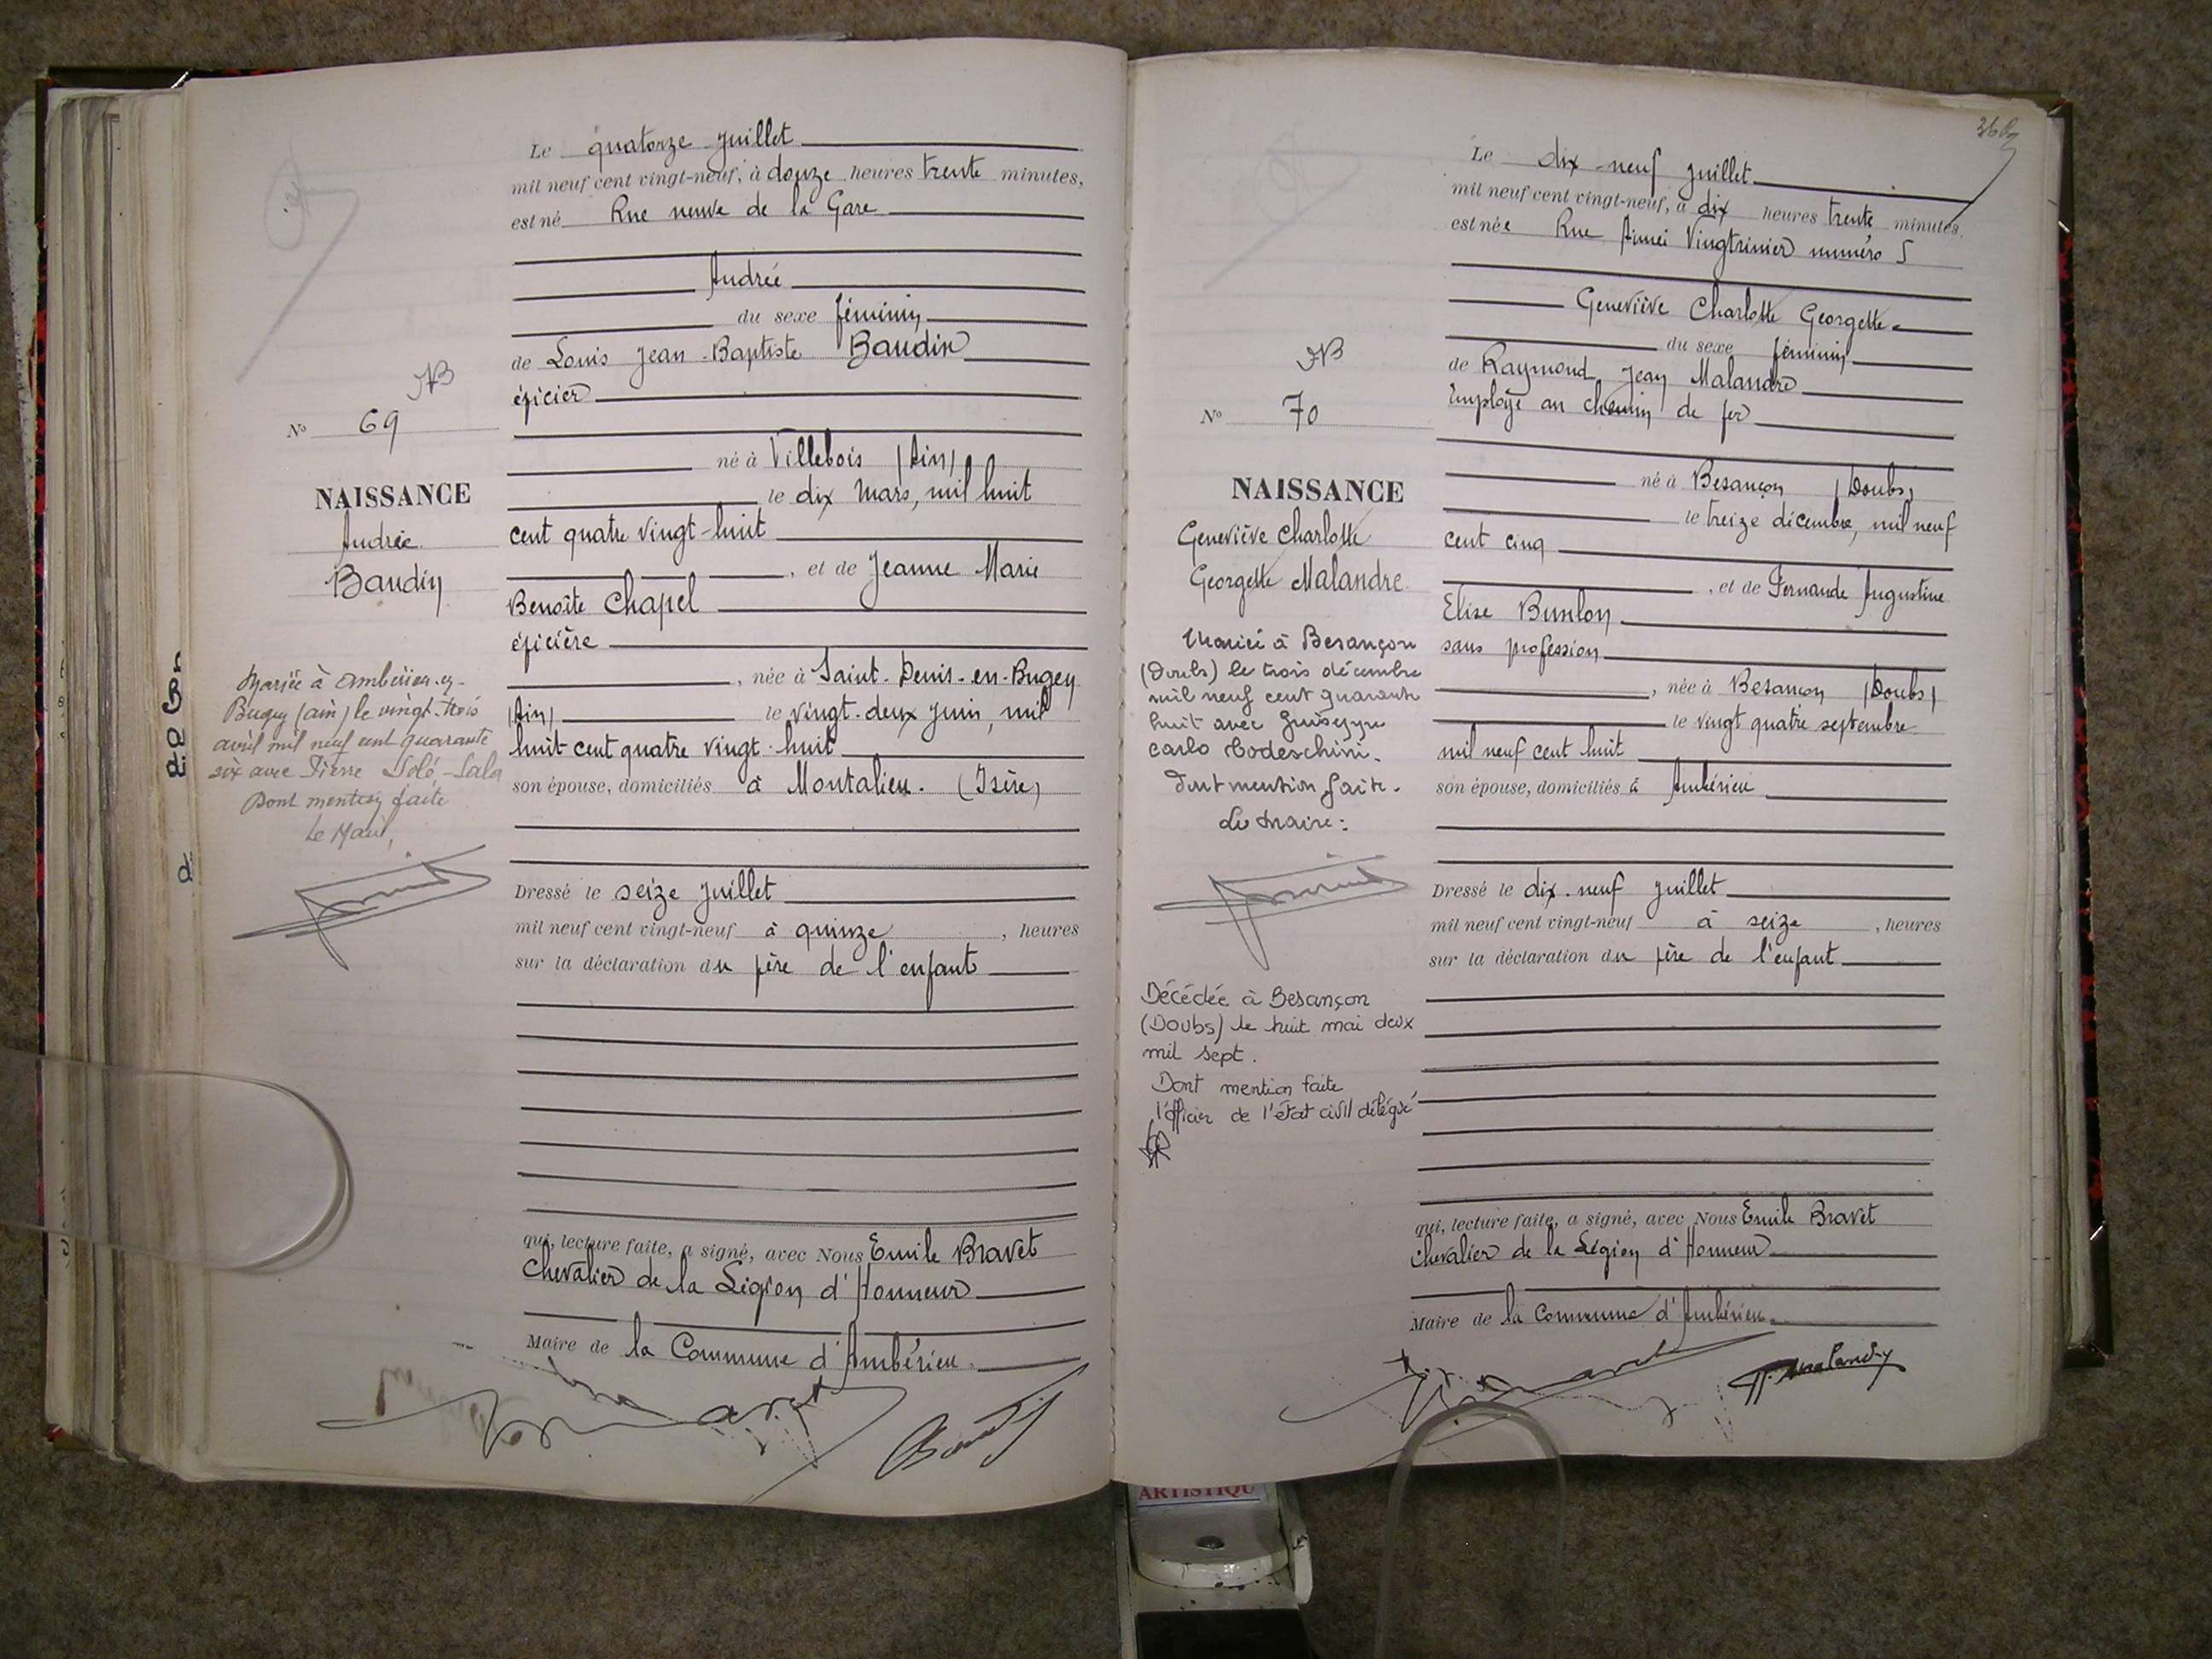 Le quatorze juillet
mil neuf cent vingt-neuf, à douze heures trente minutes,
est né Rue neuve de la Gare
Andrée
du sexe féminin
de Louis Jean-Baptiste Baudin
épicier
né à Villebois (Ain)
le dix mars, mil huit
cent quatre vingt-huit
, et de Jeanne Marie
Benoîte Chapel
épicière
, née à Saint-Denis-en-Bugey
(Ain) le vingt-deux juin, mil
huit cent quatre vingt-huit
son épouse, domiciliés à Montalieu. (Isère)
Dressé le seize juillet
mil neuf cent vingt-neuf à quinze , heures
sur la déclaration du père de l'enfant
qui, lecture faite, a signé, avec Nous Emile Bravet
Chevalier de la Légion d'Honneur
Maire de la Commune d'Ambérieu.
No 69
NAISSANCE
Andrée
Baudin
Mariée à Ambérieu-en-
Bugey (Ain) le vingt-trois
avril mil neuf cent quarante
six avec Pierre Solé-Sala
Dont mention faite
Le Maire,
Le dix-neuf juillet
mil neuf cent vingt-neuf, à dix heures trente minutes.
est née Rue Aimé Vingtrinier numéro 5
Geneviève Charlotte Georgette
du sexe féminin
de Raymond Jean Malandre
Employé au chemin de fer
né à Besançon (Doubs)
le treize décembre, mil neuf
cent cinq
, et de Fernande Augustine
Elise Bunlon
sans profession
, née à Besançon (Doubs)
le vingt quatre septembre
mil neuf cent huit
son épouse, domiciliés à Ambérieu
Dressé le dix-neuf juillet
mil neuf cent vingt-neuf à seize , heures
sur la déclaration du père de l'enfant
qui, lecture faite, a signé, avec Nous Emile Bravet
Chevalier de la Légion d'Honneur
Maire de la Commune d'Ambérieu.
No 70
NAISSANCE
Geneviève Charlotte
Georgette Malandre
Mariée à Besançon
(Doubs) le trois décembre
mil neuf cent quarante
huit avec Guiseppe
Carlo Codeschini.
Dont mention faite.
Le Maire:
Décédée à Besançon
(Doubs) le huit mai deux
mil sept.
Dont mention faite
l'officier de l'état civil délégué
ARTISTIQU